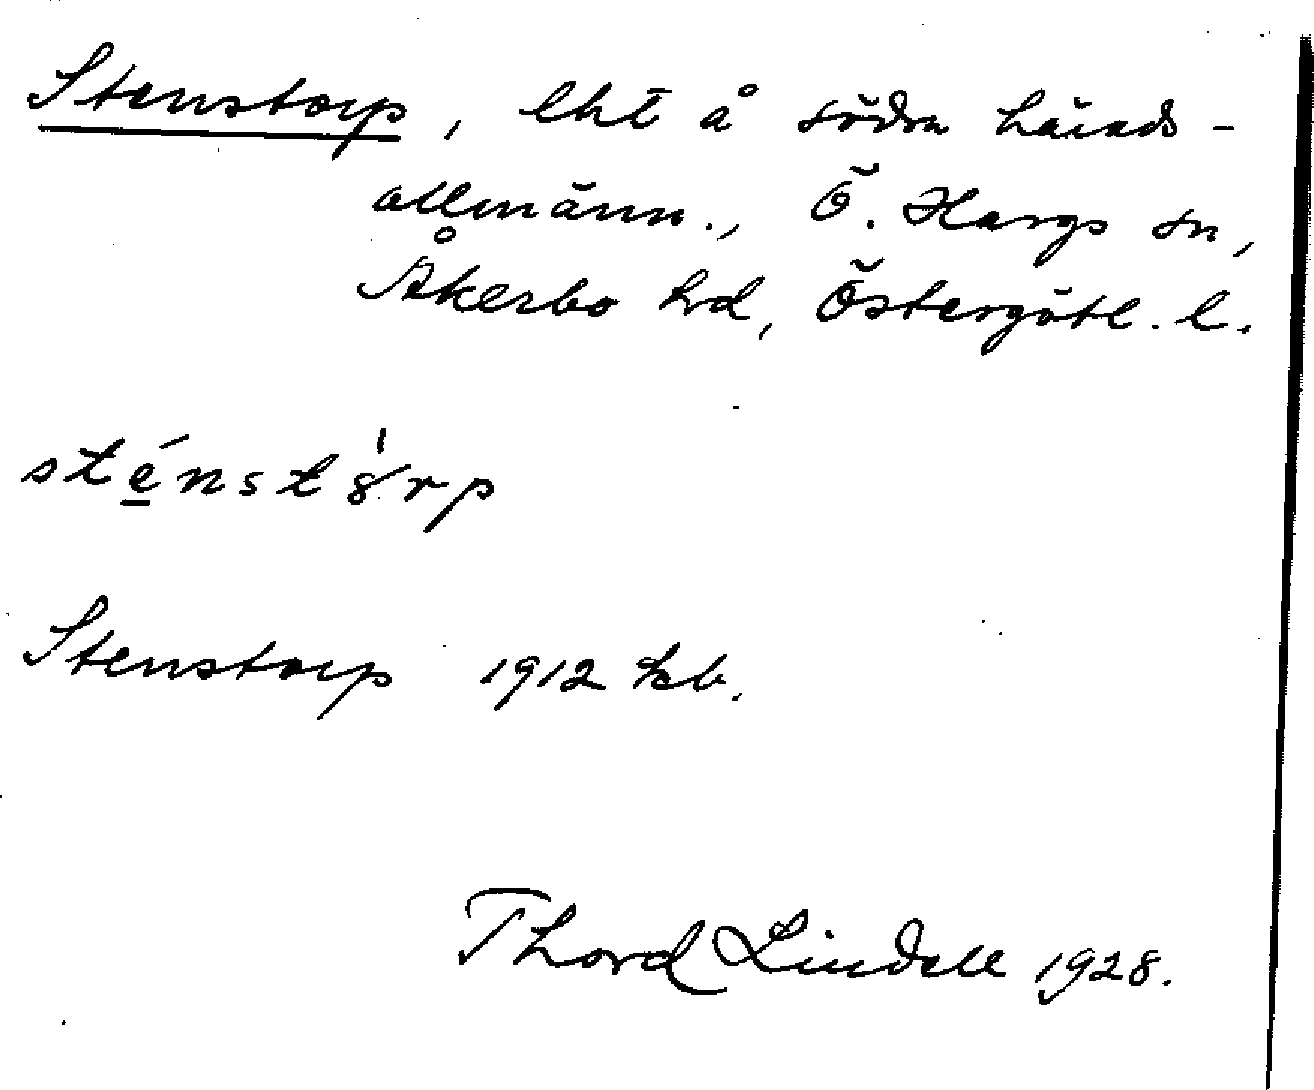 Stenstorp, lht å södra härads-
allmänn., Ö. Hargs sn,
Åkerbo hd, Östergötl. l.
sté̱nstȣ́rp
Stenstorp 1912 kb.
Thord Lindell 1928.